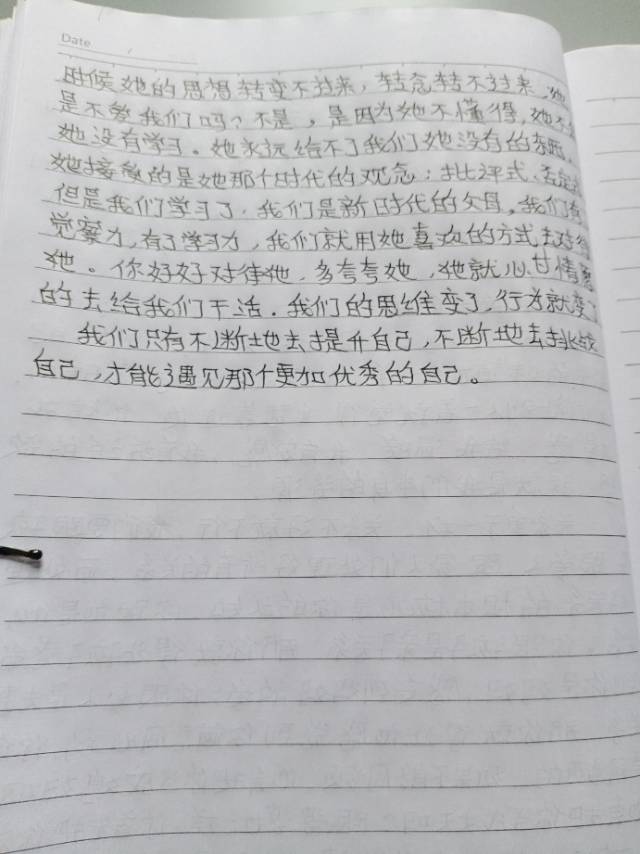 Date
时候她的思想转变不过来，转念转不过来，她
是不爱我们吗？不是，是因为她不懂得，她不
她没有学习。她永远给不了我们她没有的东西，
她接受的是她那个时代的观念：批评式、否定式
但是我们学习了，我们是新时代的父母，我们有
觉察力，有了学习力，我们就用她喜欢的方式去对待
她。你好好对待她，多夸夸她，她就心甘情愿
的去给我们干活。我们的思维变了，行为就变了
我们只有不断地去提升自己，不断地去挑战
自己，才能遇见那个更加优秀的自己。